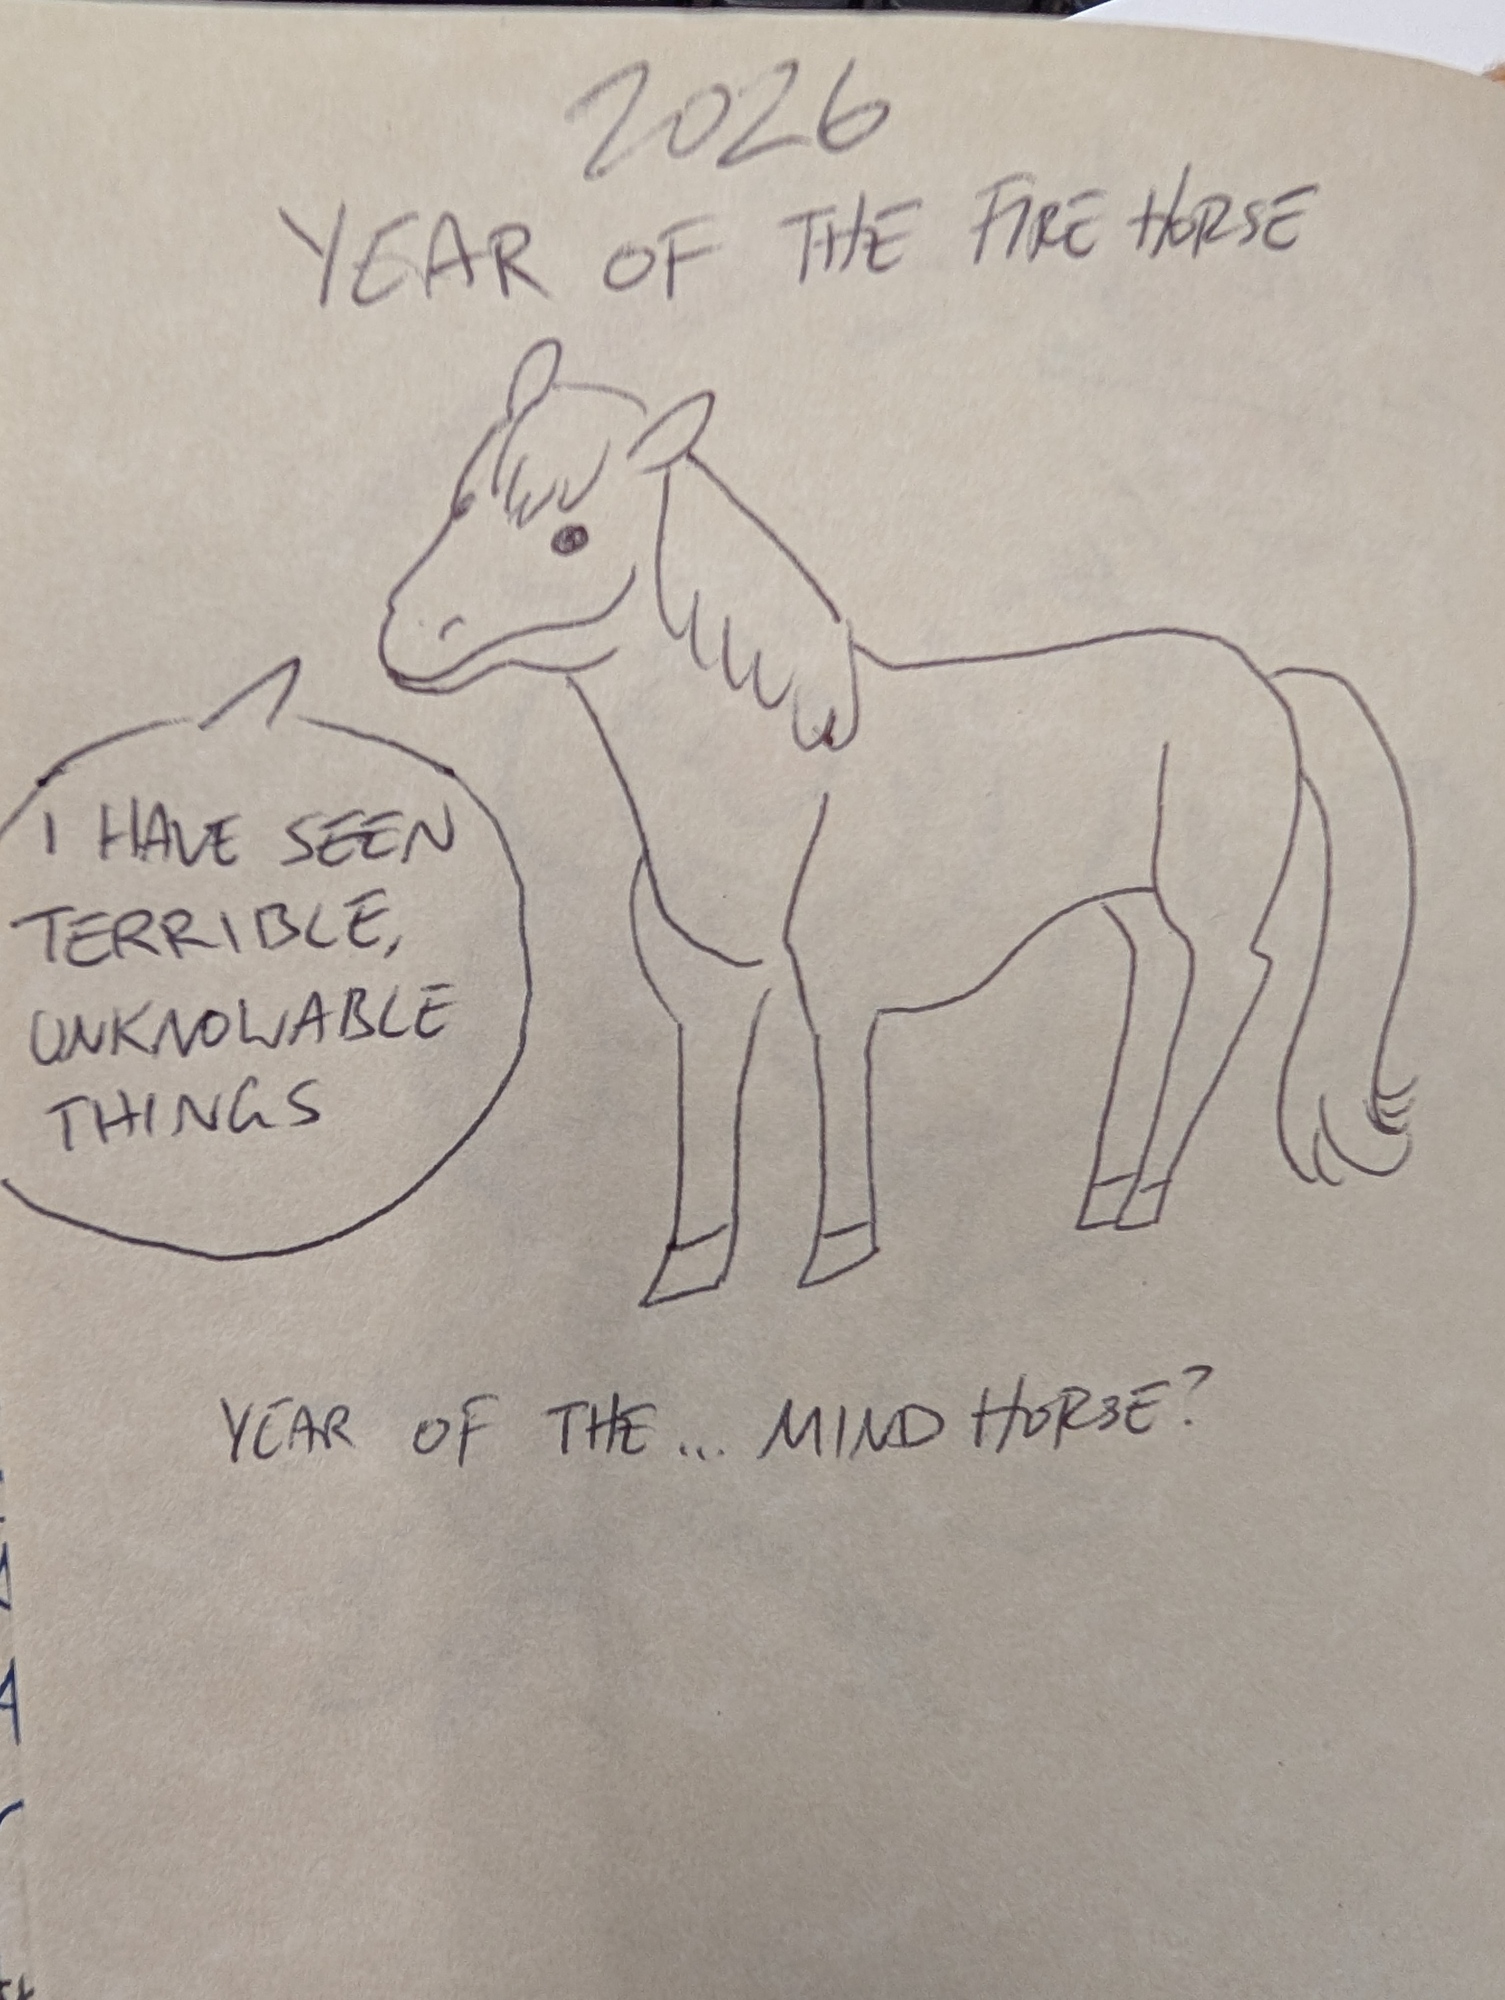 2026
YEAR OF THE FIRE HORSE
I HAVE SEEN
TERRIBLE,
UNKNOWABLE
THINGS
YEAR OF THE... MIND HORSE?